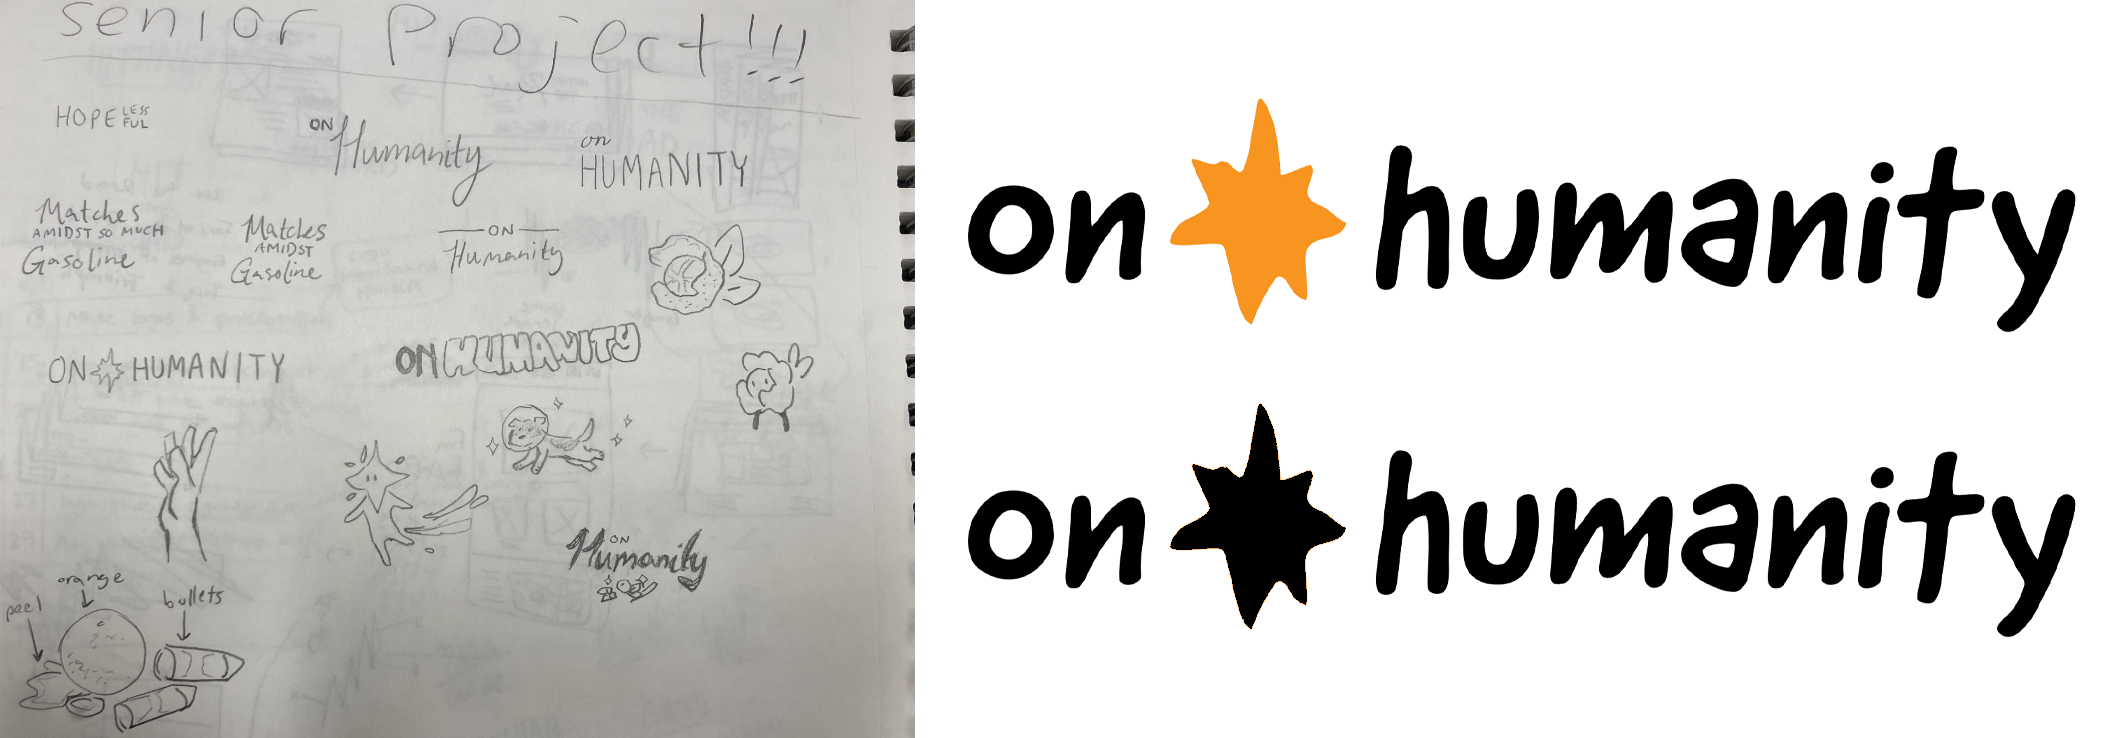 senior project!!!
HOPE LESS
FUL
ON
Humanity
on
HUMANITY
Matches
AMIDST SO MUCH
Gasoline
Matches
AMIDST
Gasoline
ON
Humanity
ON HUMANITY
ON HUMANITY
ON
Humanity
orange
peel
bullets
on humanity
on humanity